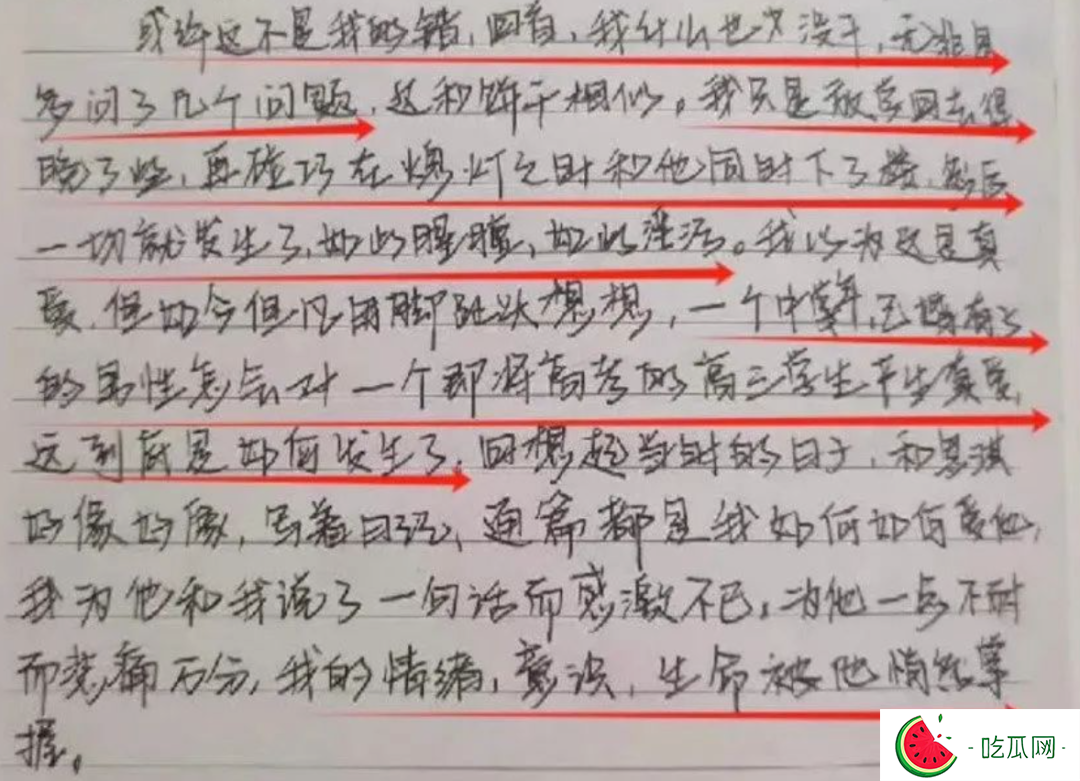 或许这不是我的错,回看,我什么也没干,无非是
多问了几个问题,这和饼干相似。我只是放学回去得
晚了些,再碰巧在熄灯之时和他同时下了楼,然后
一切就发生了,如此腥膻,如此淫污。我以为这是真
爱,但如今但凡用脚趾头想想,一个中年,已婚有子
的男性怎会对一个即将高考的高三学生产生真爱,
这到底是如何发生了。回想起当时的日子,和思琪
好像好像,写着日记,通篇都是我如何如何爱他,
我为他和我说了一句话而感激不已,为他一点不耐
而悲痛万分,我的情绪,意识,生命被他悄然掌
握。
-吃瓜网-